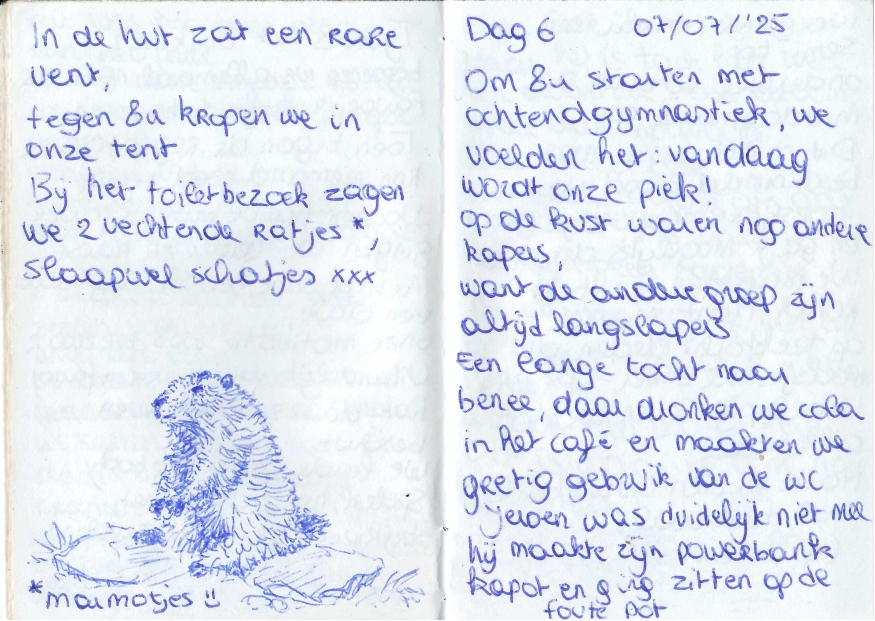 In de hut zat een RARE
vent,
tegen 8u kropen we in
onze tent
Bij het toiletbezoek zagen
we 2 vechtende ratjes*,
slaapwel schatjes xxx
*marmotjes ü
Dag 6 07/07/'25
Om 8u starten met
ochtendgymnastiek, we
voelden het, vandaag
wordt onze piek!
op de kust waren nog andere
kapers,
want de andere groep zijn
altijd langslapers
Een lange tocht naar
benee, daar dronken we cola
in het café en maakten we
gretig gebruik van de wc
jeroen was duidelijk niet mee
hij maakte zijn powerbank
kapot en ging zitten op de
foute pot